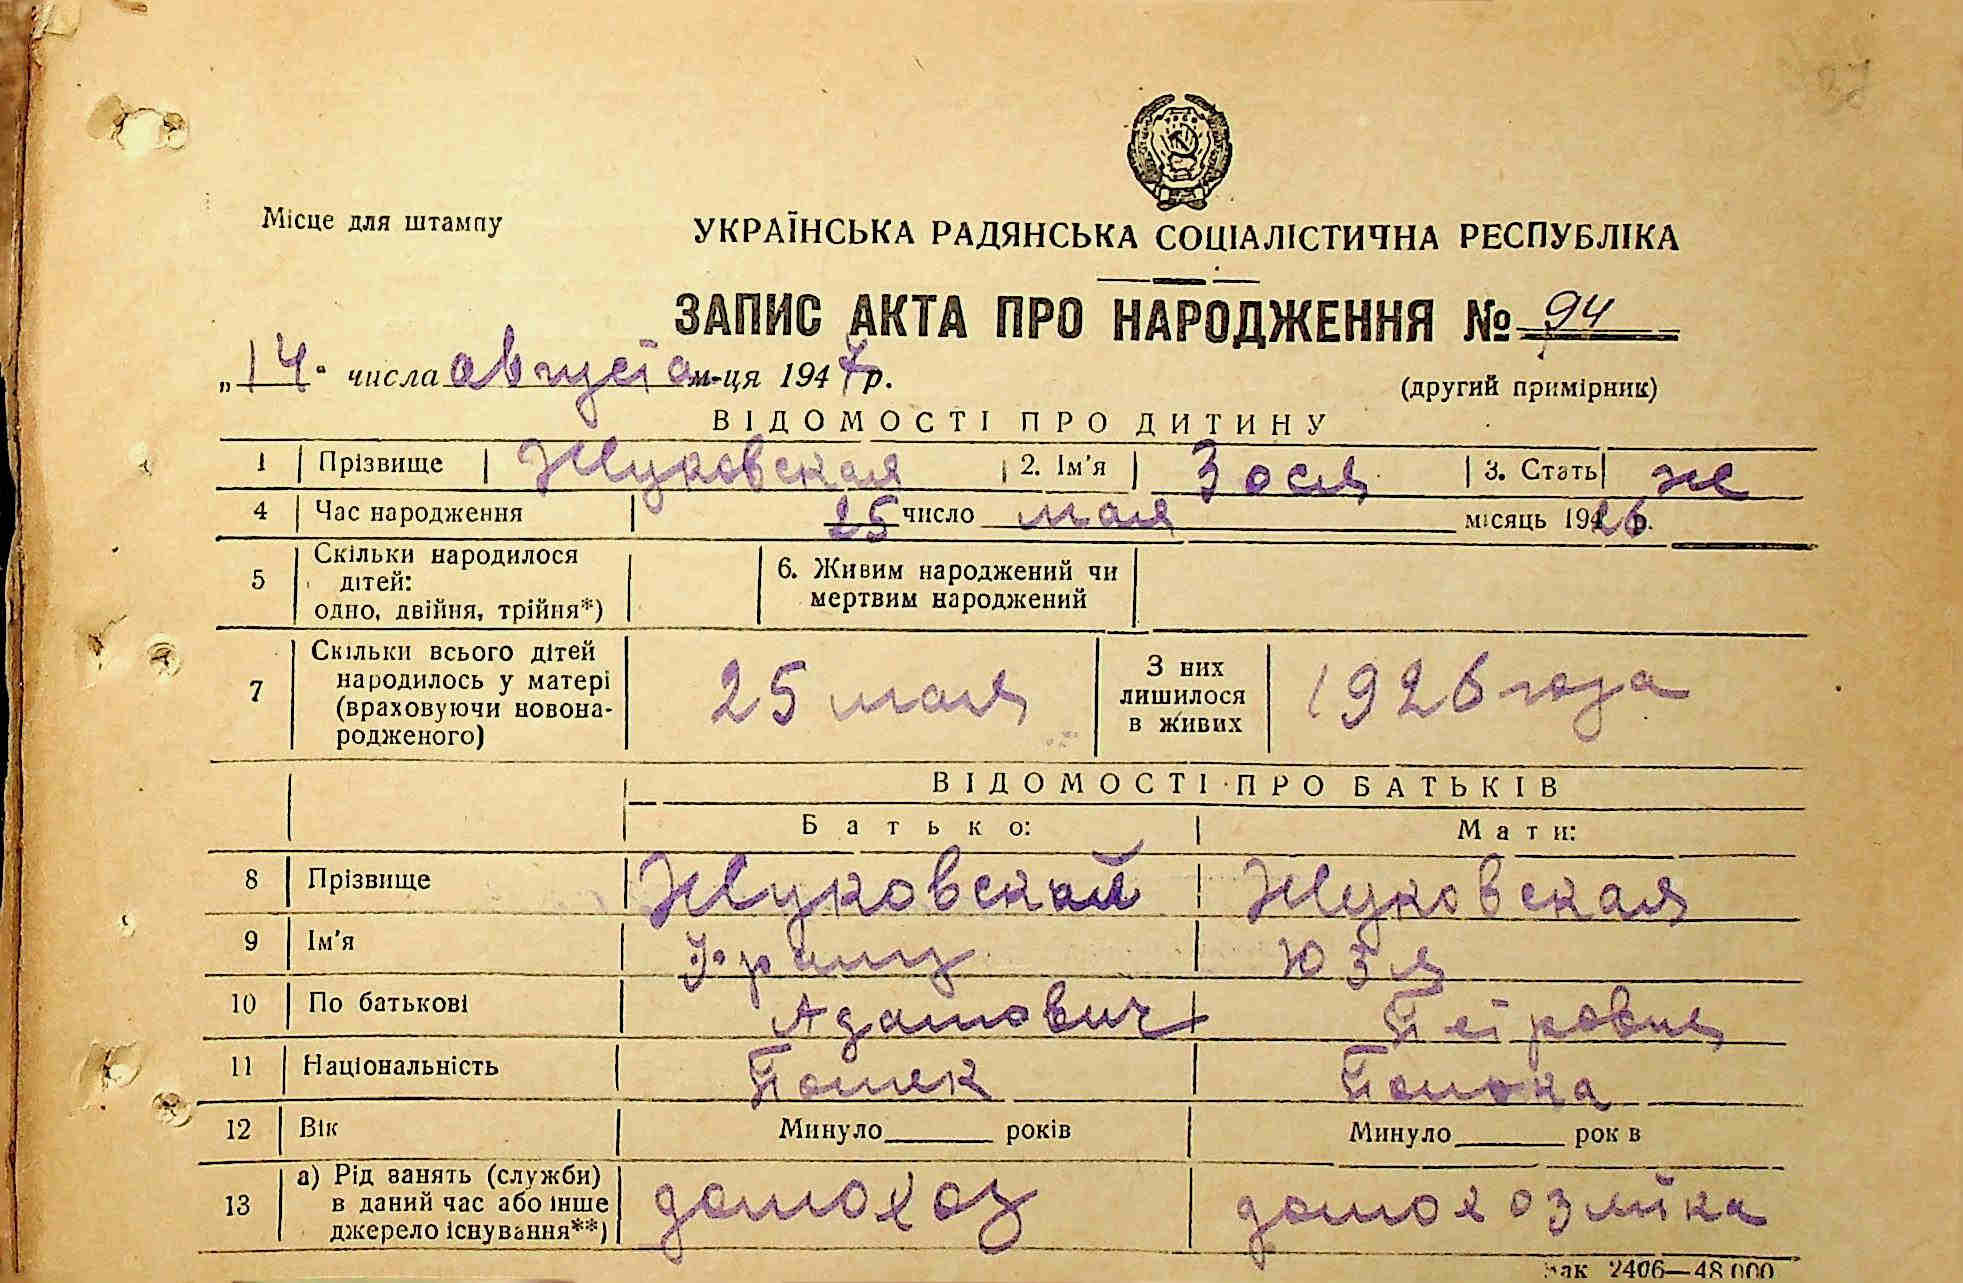 Місце для штампу
УКРАЇНСЬКА РАДЯНСЬКА СОЦІАЛІСТИЧНА РЕСПУБЛІКА
ЗАПИС АКТА ПРО НАРОДЖЕННЯ № 94
„14" числа августа м-ця 1947 р.
(другий примірник)
ВІДОМОСТІ ПРО ДИТИНУ
1 Прізвище Жуковская 2. Ім'я Зося 3. Стать ж
4 Час народження 25 число мая місяць 1926 р.
5 Скільки народилося дітей: одно, двійня, трійня*) 6. Живим народжений чи мертвим народжений
7 Скільки всього дітей народилось у матері (враховуючи новонародженого) 25 мая З них лишилося в живих 1926 года
ВІДОМОСТІ ПРО БАТЬКІВ
Батько: Мати:
8 Прізвище Жуковский Жуковская
9 Ім'я Франц Юзя
10 По батькові Адамович Петровна
11 Національність Поляк Полька
12 Вік Минуло років Минуло рок в
13 а) Рід занять (служби) в даний час або інше джерело існування**) домохоз домохозяйка
Зак 2406—48.000